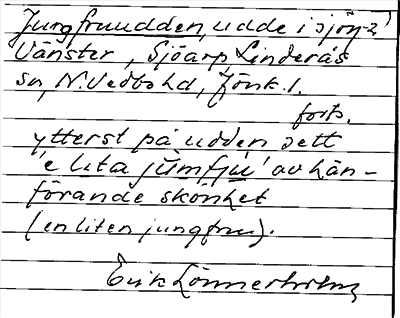 Jungfruudden, udde i sjön 2)
Vänster, Sjöarp Linderås
sn, N. Vedbo hd, Jönk. l.
forts.
ytterst på udden sett
'e lita jumfju' av hän-
förande skönhet
(en liten jungfru).
Erik Lönnerholm